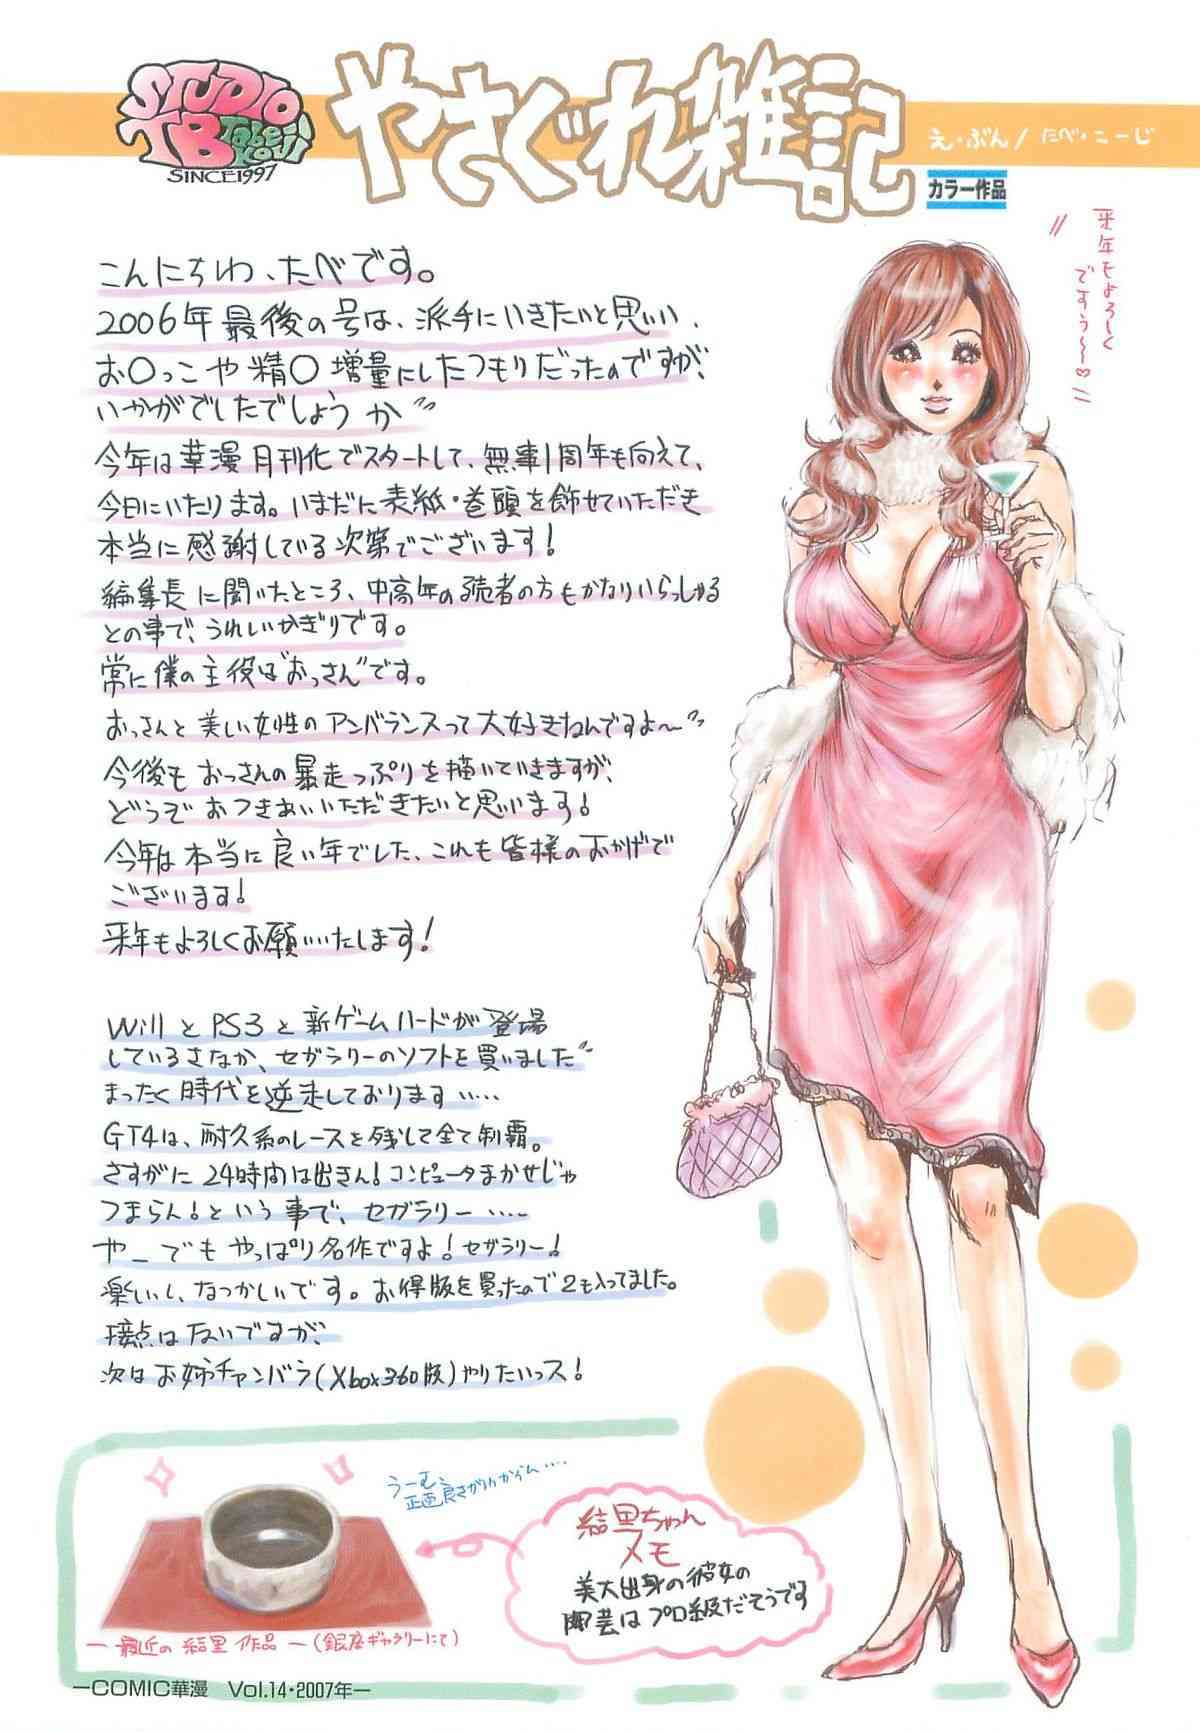 STUDIO
TB Tabe Koji
SINCE1997
やさぐれ雑記
え・ぶん/たべ・こーじ
カラー作品
来年もよろしく
ですぅ〜〜♡
こんにちわ、たべです。
2006年最後の号は、派手にいきたいと思い、
お〇っこや精〇増量にしたつもりだったのですが、
いかがでしたでしょうか"
今年は華漫月刊化でスタートして、無事1周年も向えて、
今日にいたります。いまだに表紙・巻頭を飾せていただき
本当に感謝している次第でございます!
編集長に聞いたところ、中高年の読者の方もかなりいらっしゃる
との事で、うれしいかぎりです。
常に僕の主役は"おっさん"です。
おっさんと美しい女性のアンバランスって大好きねんですよ〜"
今後もおっさんの暴走っぷりを描いていきますが、
どうぞおつきあいいただきたいと思います!
今年は本当に良い年でした、これも皆様のおかげで
ございます!
来年もよろしくお願いいたします!
WiiとPS3と新ゲームハードが登場
しているさなか、セガラリーのソフトを買いました"
まったく時代を逆走しております……
GT4は、耐久系のレースを残して全て制覇。
さすがに24時間は出きん!コンピュータまかせじゃ
つまらん!という事で、セガラリー……
や_でもやっぱり名作ですよ!セガラリー!
楽しいし、なつかしいです。お得版を買ったので2も入ってました。
接点はないですが、
次はお姉チャンバラ(Xbox360版)やりたいっス!
うーむ、
正直良さがわからん….
結里ちゃん
メモ
美大出身の彼女の
陶芸はプロ級だそうです
ー最近の結里作品ー(銀座ギャラリーにて)
ーCOMIC華漫 Vol.14・2007年ー